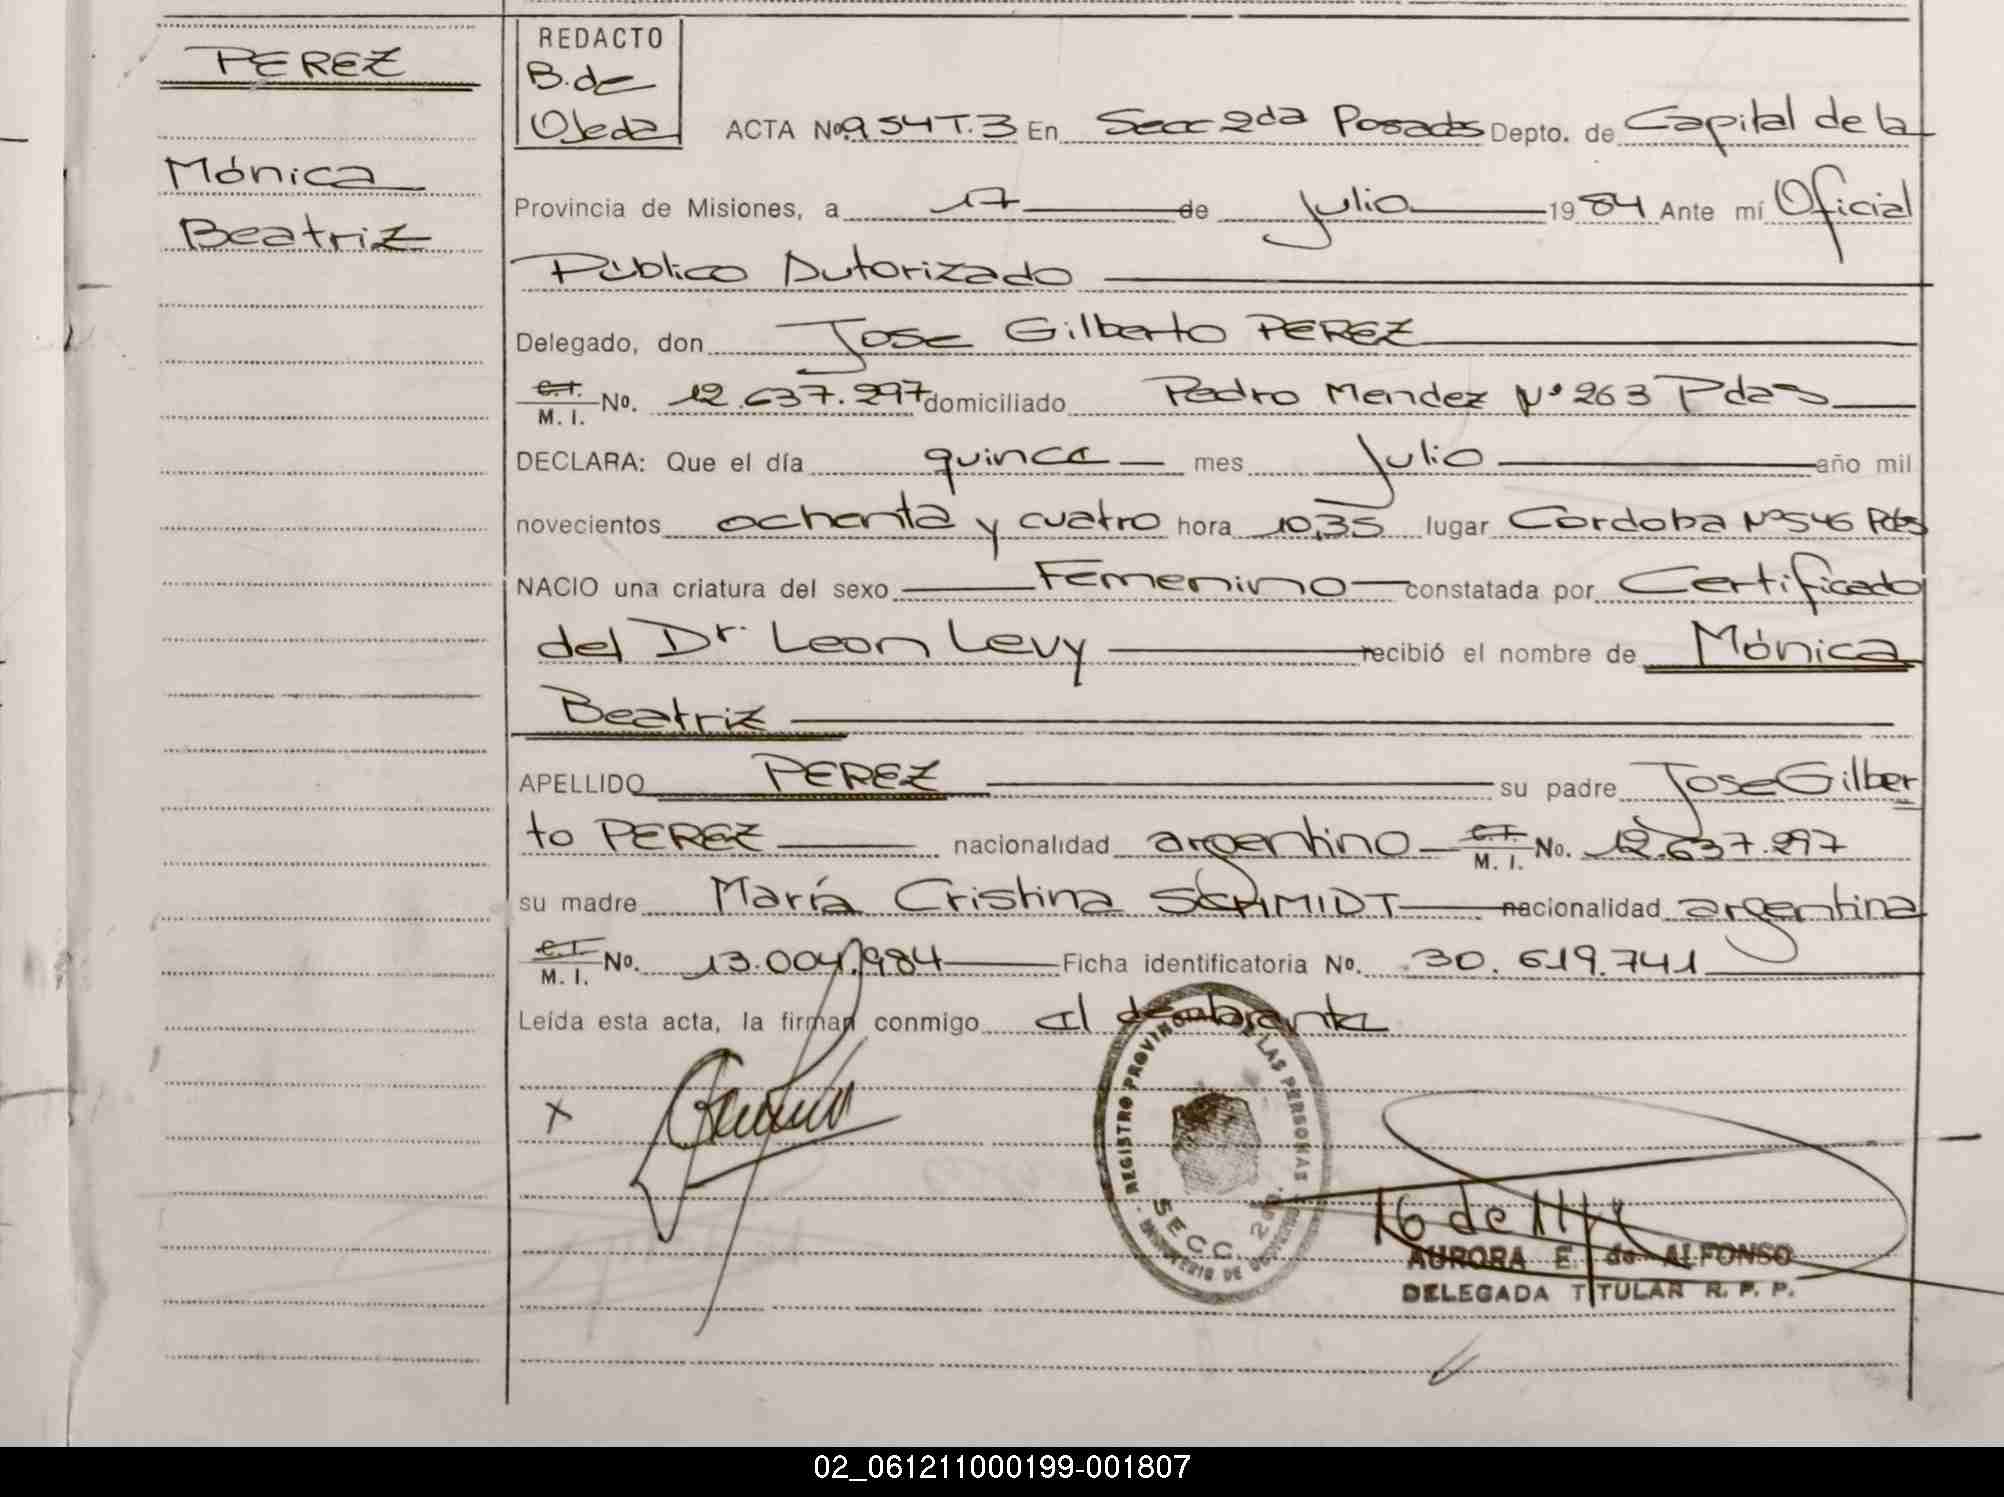 PEREZ
Mónica
Beatriz
REDACTO
B. de
Ojeda
ACTA No 954 T.3 En Secc 2da Posadas Depto. de Capital de la
Provincia de Misiones, a 17 de Julio 1984 Ante mí Oficial
Público Autorizado
Delegado, don Jose Gilberto PEREZ
C.I. M. I. No. 12.637.297 domiciliado Pedro Mendez Nº 263 Pdas
DECLARA: Que el día quince mes Julio año mil
novecientos ochenta y cuatro hora 10,35 lugar Cordoba Nº 546 Pdas
NACIO una criatura del sexo Femenino constatada por Certificado
del Dr. Leon Levy recibió el nombre de Mónica
Beatriz
APELLIDO PEREZ su padre Jose Gilber
to PEREZ nacionalidad argentino C.I. M. I. No. 12.637.297
su madre María Cristina SCHMIDT nacionalidad argentina
C.I. M. I. No. 13.004.984 Ficha identificatoria No. 30.619.741
Leída esta acta, la firman conmigo el declarante
X
REGISTRO PROVINCIAL DE LAS PERSONAS
SECC. 2da.
MINISTERIO DE GOBIERNO
AURORA E. de ALFONSO
DELEGADA TITULAR R. P. P.
02_061211000199-001807